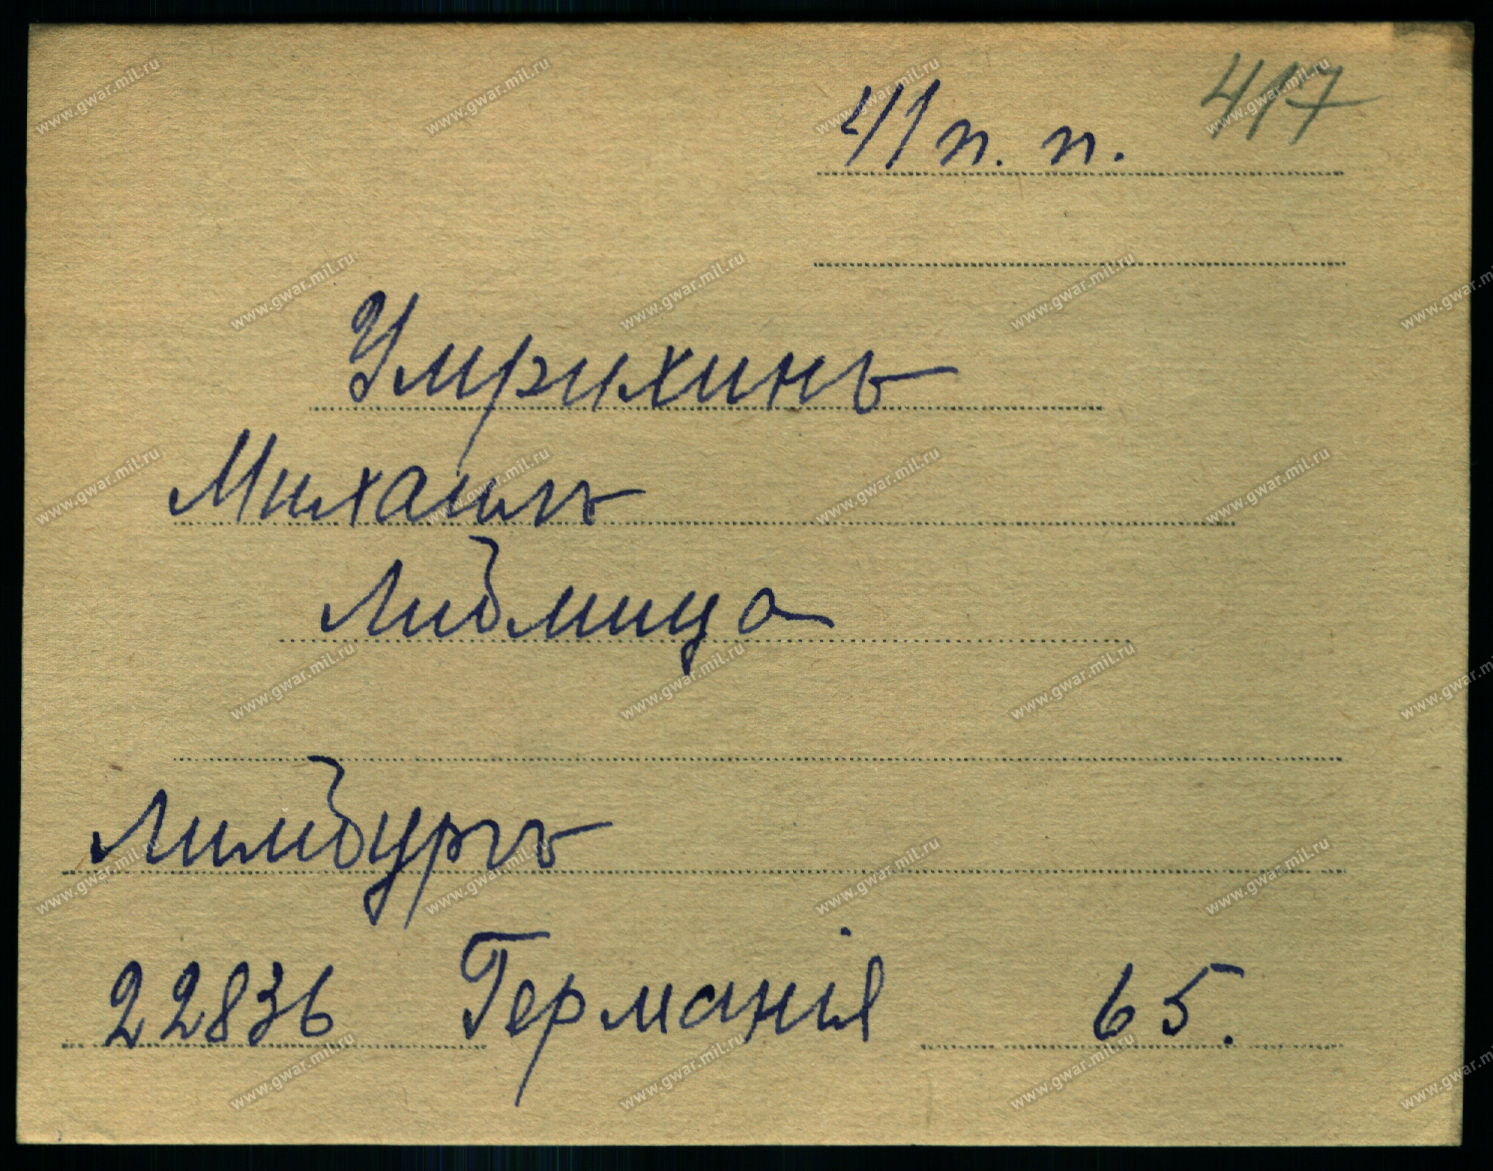 41 п. п. 417
Умрихинъ
Михаилъ
Лидмица
Лимбургъ
22836 Германія 65.
www.gwar.mil.ru